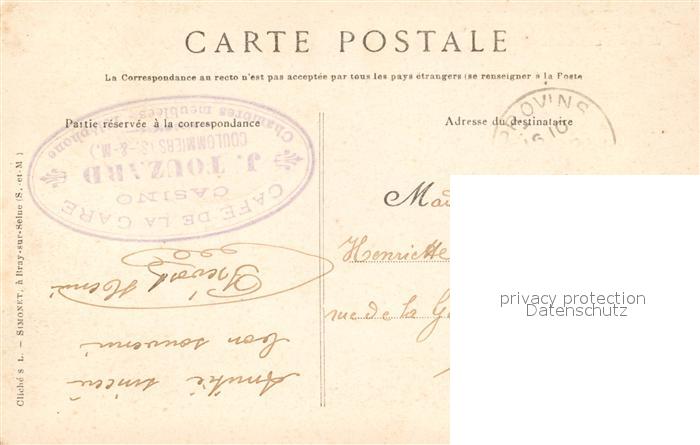 CARTE POSTALE
La Correspondance au recto n'est pas acceptée par tous les pays étrangers (se renseigner à la Poste
Partie réservée à la correspondance
Adresse du destinataire
PROVINS
CAFÉ DE LA GARE
CASINO
J. TOUZARD
COULOMMIERS (S.-&-M.)
Chambres meublées
Téléphone
Amitié sincère
bon souvenir
Henri
Mad
Henriette
rue de la Ga
Cliché S L. — SIMONET, à Bray-sur-Seine (S.-et-M)
privacy protection
Datenschutz